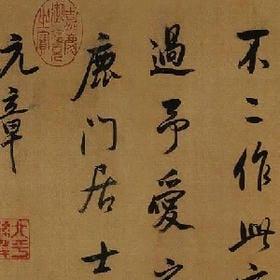 不二作此
過予愛之
鹿门居士
元章